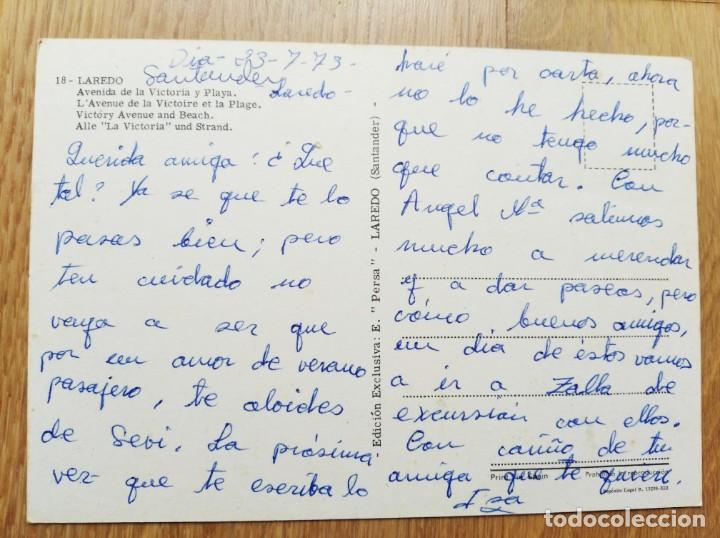 Dia-23-7-73-
Santander
Laredo-
18 - LAREDO
Avenida de la Victoria y Playa.
L'Avenue de la Victoire et la Plage.
Victóry Avenue and Beach.
Alle "La Victoria" und Strand.
Querida amiga: ¿Que
tal? Ya se que te lo
pasas bien; pero
ten cuidado no
vaya a ser que
por un amor de verano
pasajero, te olvides
de Sevi. La prósima
vez que te escriba lo
Edición Exclusiva: E. "Persa" - LAREDO (Santander) -
haré por carta, ahora
no lo he hecho, por-
que no tengo mucho
que contar. Con
Angel Mª salimos
mucho a merendar
y a dar paseos, pero
cómo buenos amigos,
un dia de éstos vamos
a ir a Zalla de
excursión con ellos.
Con cariño de tu
amiga que te quiere.
Iza
Printed in Spain
Prohibida la reproducción
Depósito Legal B.
todocoleccion